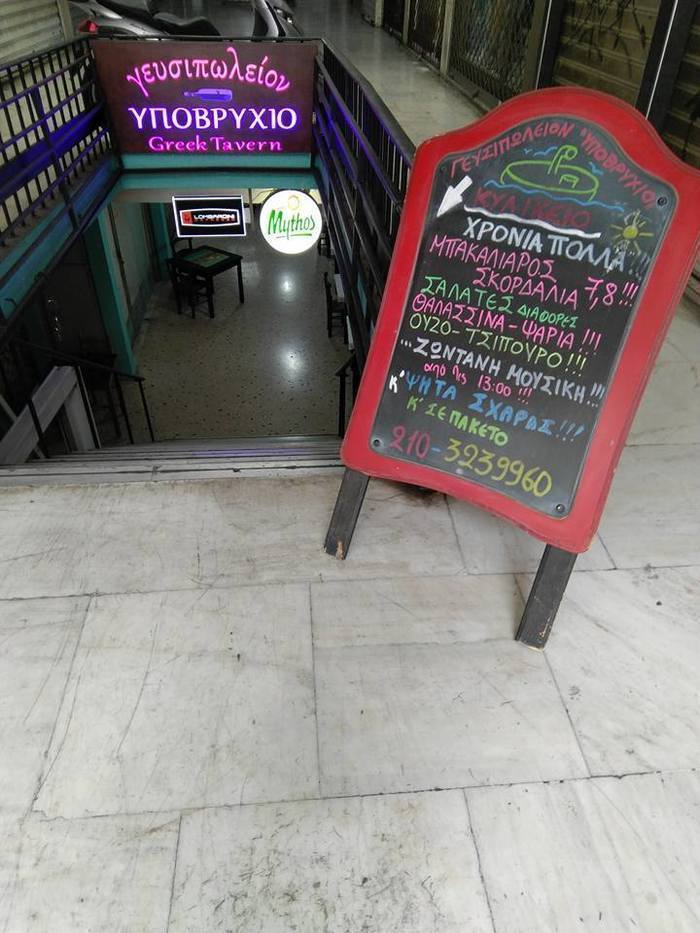 γευσιπωλείον
ΥΠΟΒΡΥΧΙΟ
Greek Tavern
LOMBARDINI
Mythos
ΓΕΥΣΙΠΩΛΕΙΟΝ ΥΠΟΒΡΥΧΙΟ
ΚΥΛΙΚΕΙΟ
ΧΡΟΝΙΑ ΠΟΛΛΑ
ΜΠΑΚΑΛΙΑΡΟΣ
ΣΚΟΡΔΑΛΙΑ 7,8!!!
ΣΑΛΑΤΕΣ ΔΙΑΦΟΡΕΣ
ΘΑΛΑΣΣΙΝΑ-ΨΑΡΙΑ!!!
ΟΥΖΟ-ΤΣΙΠΟΥΡΟ!!!
ΖΩΝΤΑΝΗ ΜΟΥΣΙΚΗ!!!
από τις 13:00!!!
Κ' ΨΗΤΑ ΣΧΑΡΑΣ!!!
Κ' ΣΕ ΠΑΚΕΤΟ
210-3239960